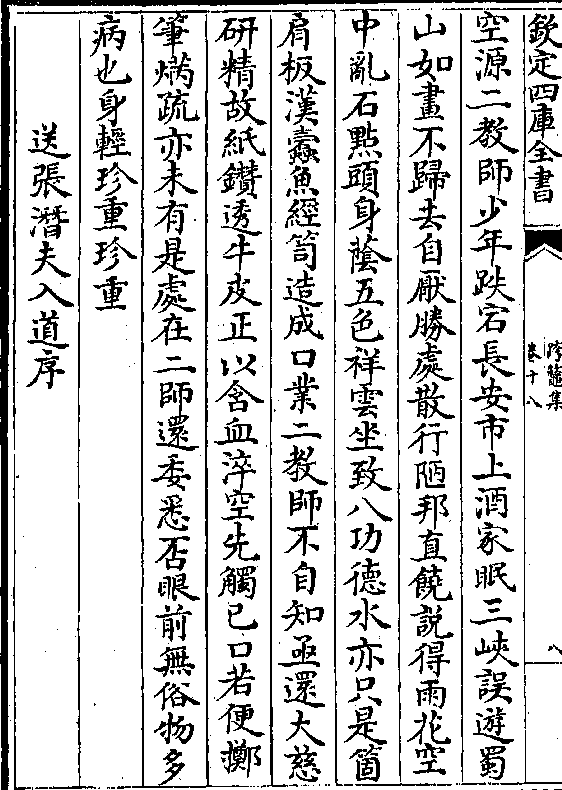 欽定四庫全書
跨鼇集
卷十八
八
空源二教師少年跌宕長安市上酒家眠三峽誤遊蜀
山如畫不歸去自厭勝處散行陋邦直饒説得雨花空
中亂石點頭身蔭五色祥雲坐致八功德水亦只是箇
肩板漢蠧魚經笥造成口業二教師不自知亟還大慈
研精故紙鑽透牛皮正以含血淬空先觸已口若便擲
筆焫疏亦未有是處在二師還委悉否眼前無俗物多
病也身輕珍重珍重
送張潛夫入道序